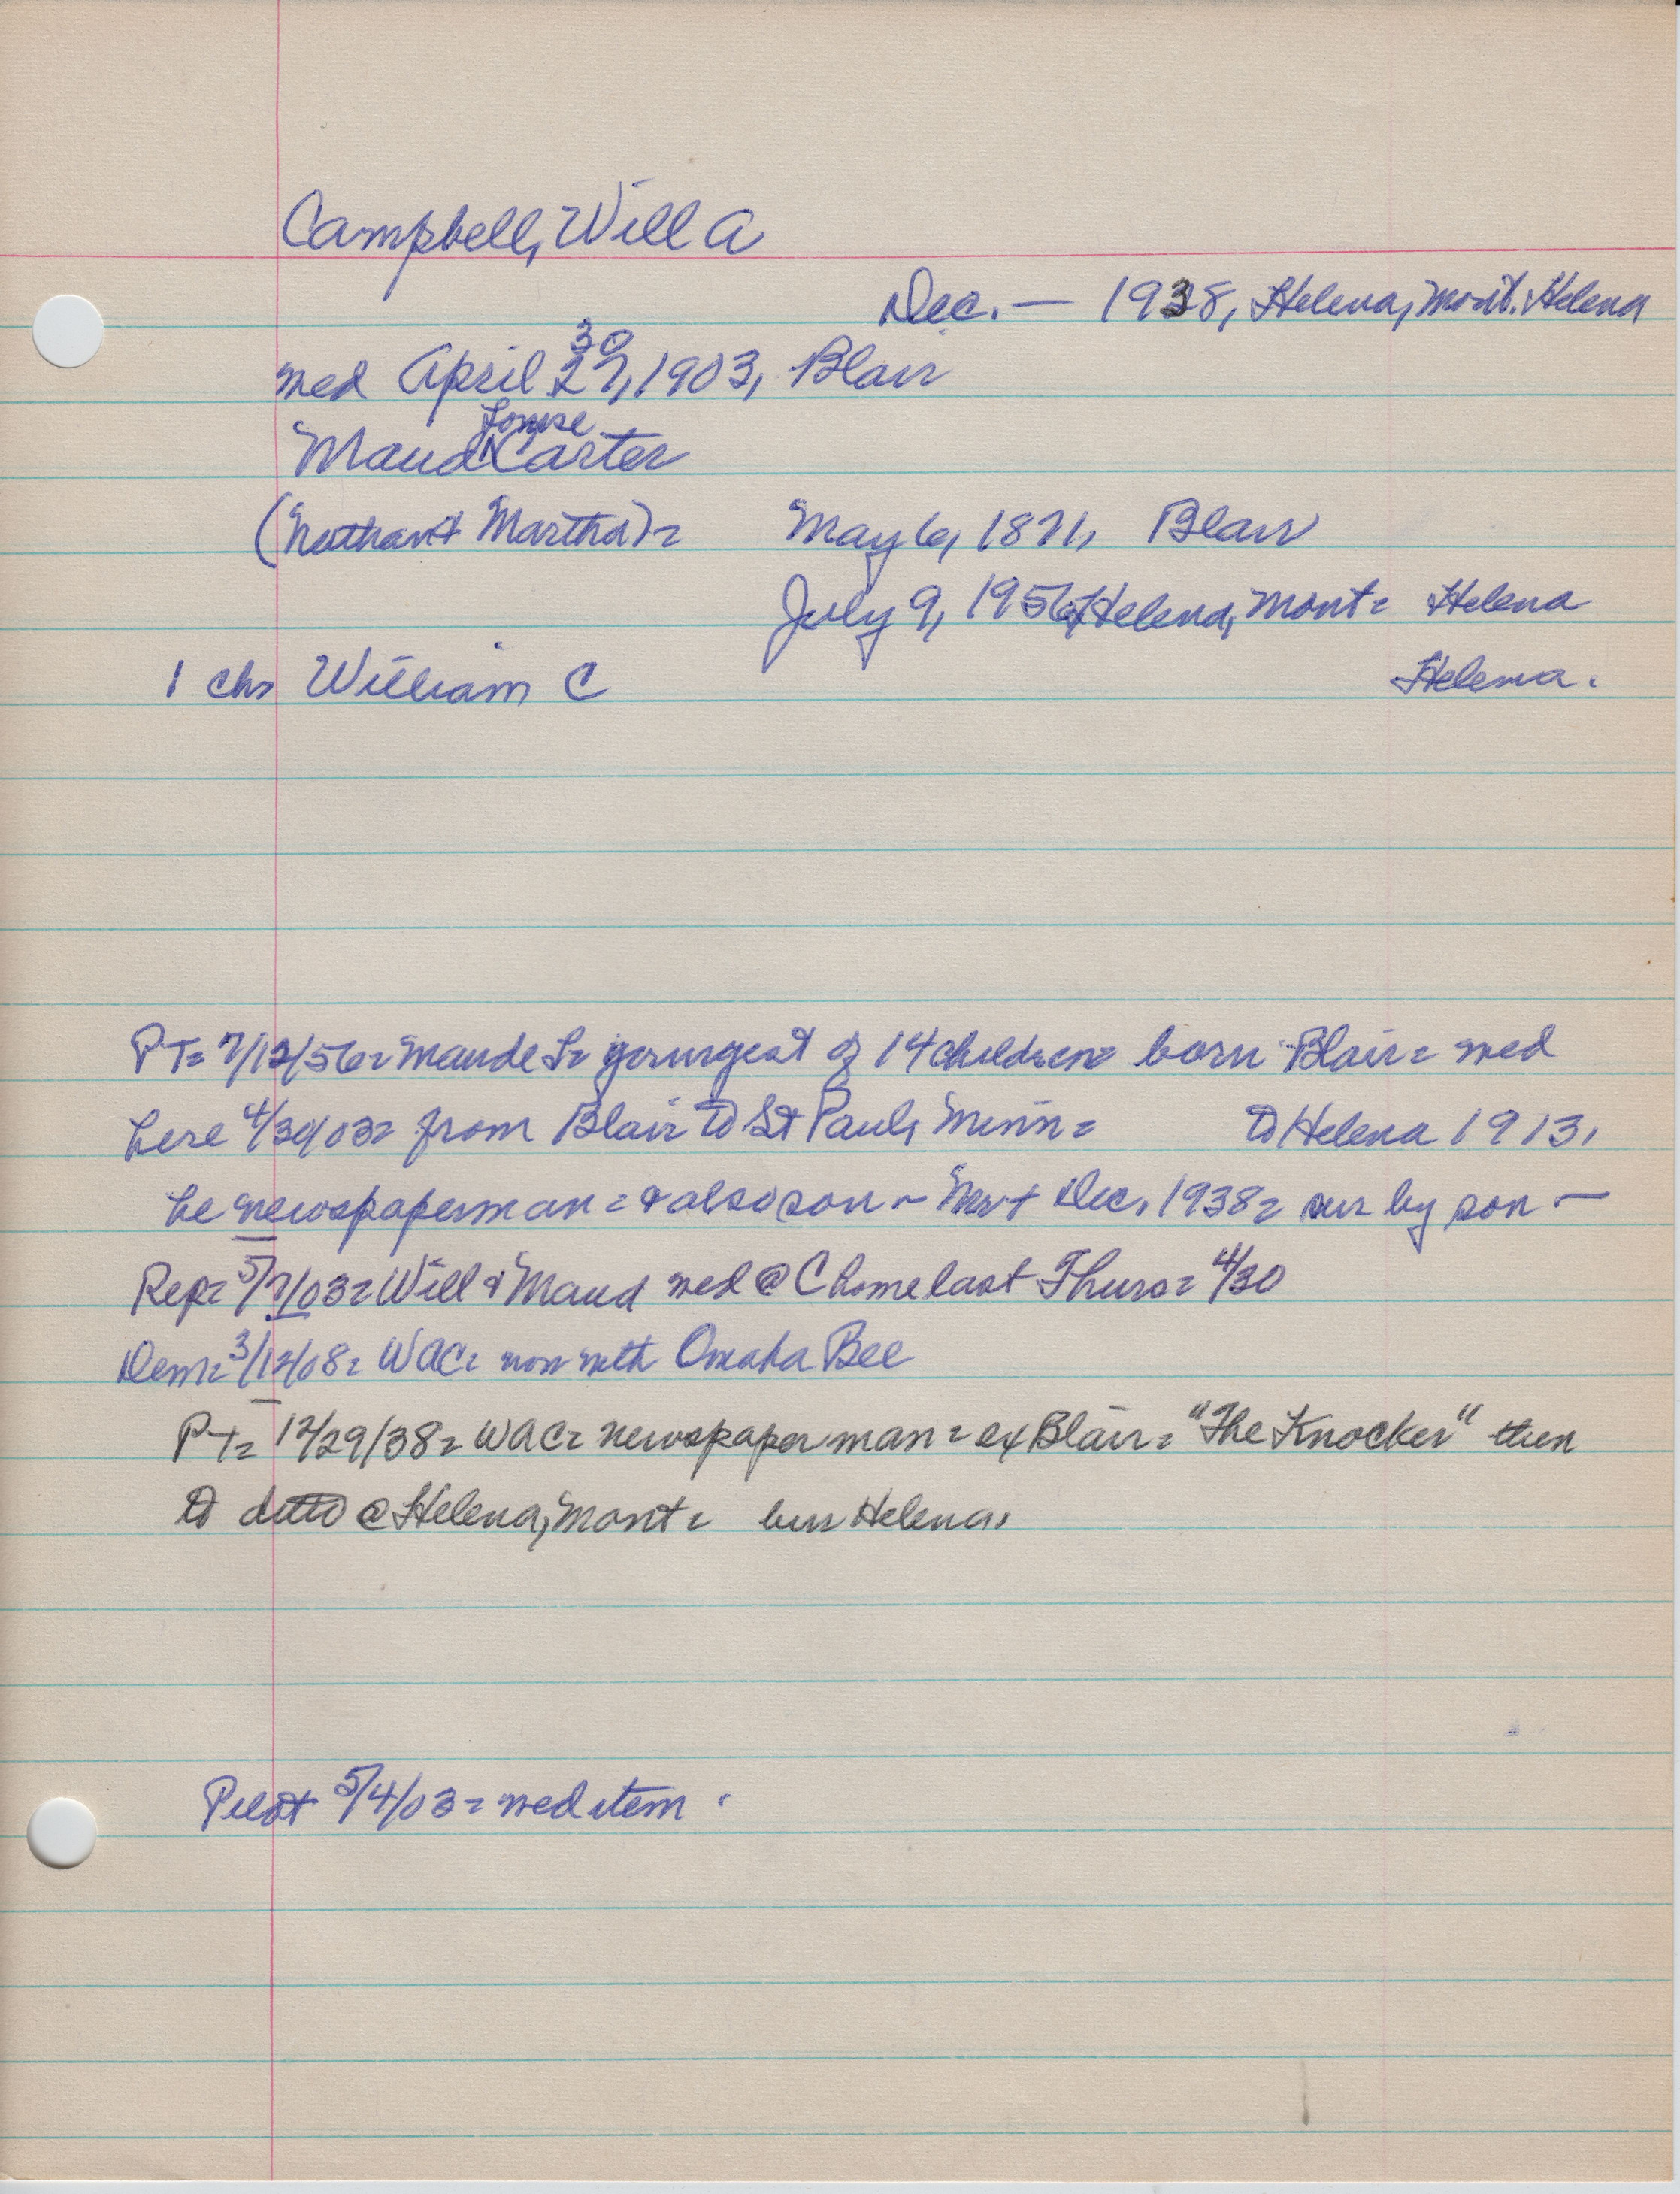 Campbell, Will A
Dec. — 1938, Helena, Mont. Helena
med April 27, 1903, Blair
30
Louise
Maud Carter
(Nathan & Martha) = May 6, 1871, Blair
July 9, 1956, Helena, Mont = Helena
1 chn William C Helena.
PT = 7/12/56 = Maude L = youngest of 14 children = born Blair = med
here 4/30/03 = from Blair to St Paul, Minn = to Helena 1913,
he newspaperman = & also son ~ Dec. 1938 = sur by son —
Rep = 5/7/03 = Will & Maud med @ C home last Thurs = 4/30
Dem = 3/12/08 = WAC = now with Omaha Bee
PT = 12/29/38 = WAC = newspaper man = ex Blair = "The Knocker" then
to ditto @ Helena, Mont = bur Helena.
Pilot 5/4/03 = med item.